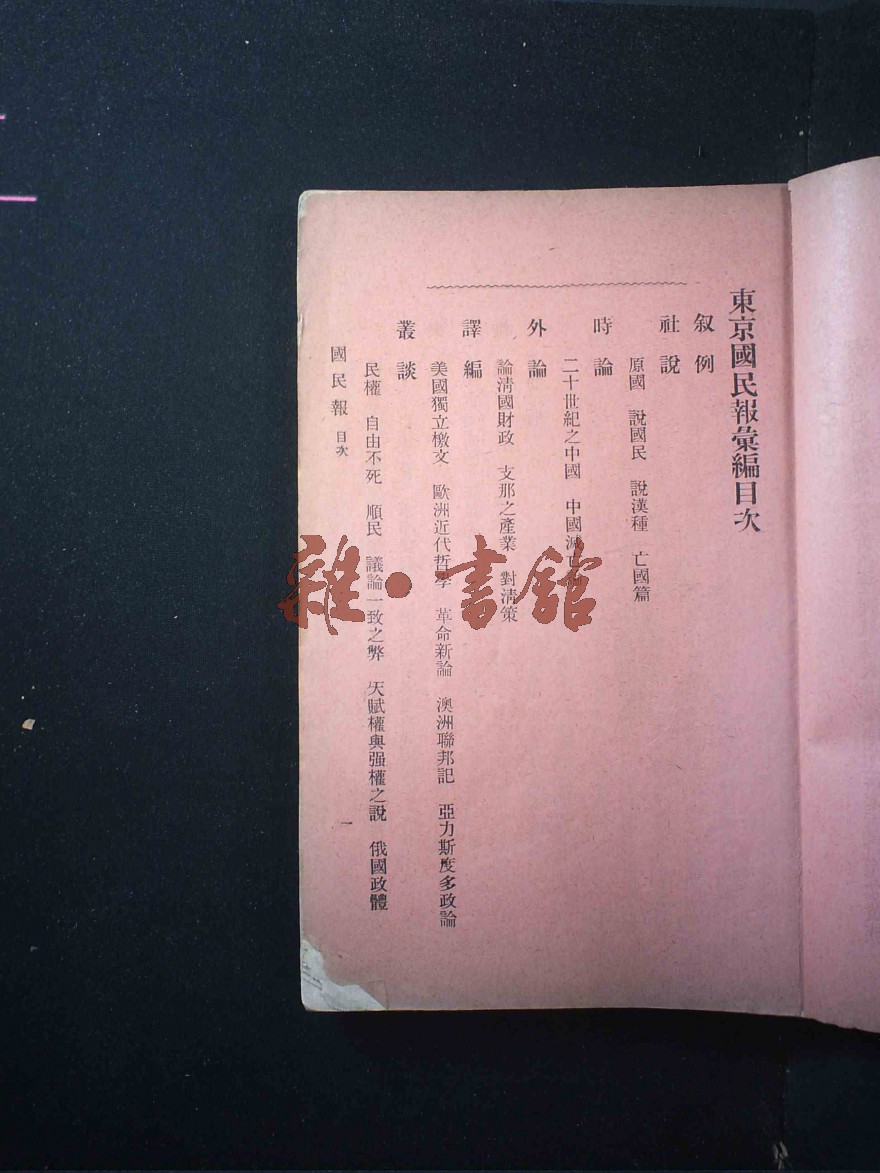 東京國民報彙編目次
叙例
社說
原國　說國民　說漢種　亡國篇
時論
二十世紀之中國　中國滅亡論
外論
論清國財政　支那之產業　對清策
譯編
美國獨立檄文　歐洲近代哲學　革命新論　澳洲聯邦記　亞力斯度多政論
叢談
民權　自由不死　順民　議論一致之弊　天賦權與强權之說　俄國政體
國民報　目次　一
雜·書館